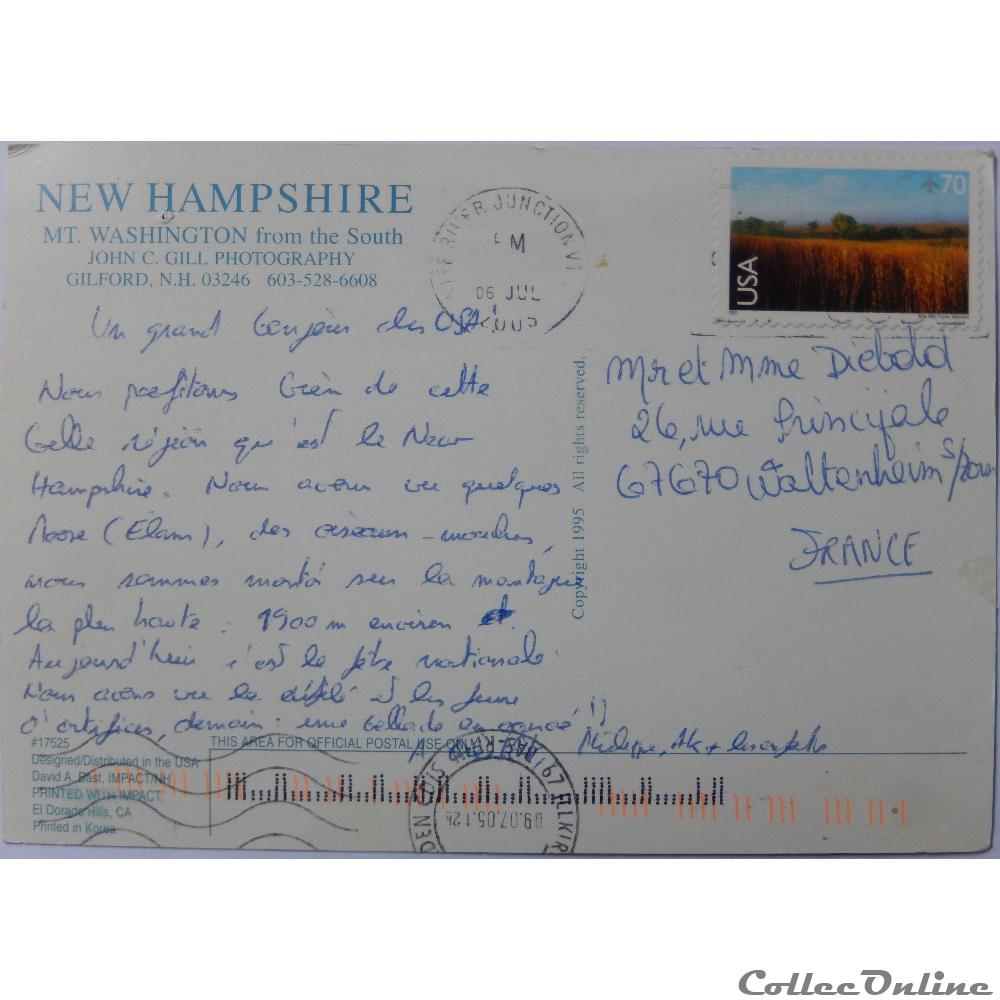 NEW HAMPSHIRE
MT. WASHINGTON from the South
JOHN C. GILL PHOTOGRAPHY
GILFORD, N.H. 03246 603-528-6608
RIVER JUNCTION VT
M
06 JUL
2005
70
USA
Un grand bonjour des USA!
Nous profitons bien de cette
belle région qu'est le New
Hampshire. Nous avons vu quelques
Moose (Élans), des oiseaux-mouches,
nous sommes montés sur la montagne
la plus haute : 1900 m environ
Aujourd'hui c'est la fête nationale.
Nous avons vu le défilé et les feux
d'artifices, demain : une ballade en canoé !)
Philippe,
Mr et Mme Diebold
26, rue Principale
67670 Waltenheim s/Zorn
FRANCE
Copyright 1995 All rights reserved.
#17525
Designed/Distributed in the USA
David A. Bast, IMPACT/NH
PRINTED WITH IMPACT,
El Dorado Hills, CA
Printed in Korea
THIS AREA FOR OFFICIAL POSTAL USE ONLY
67 BAS RHIN
09.07.05.12h
CollecOnline